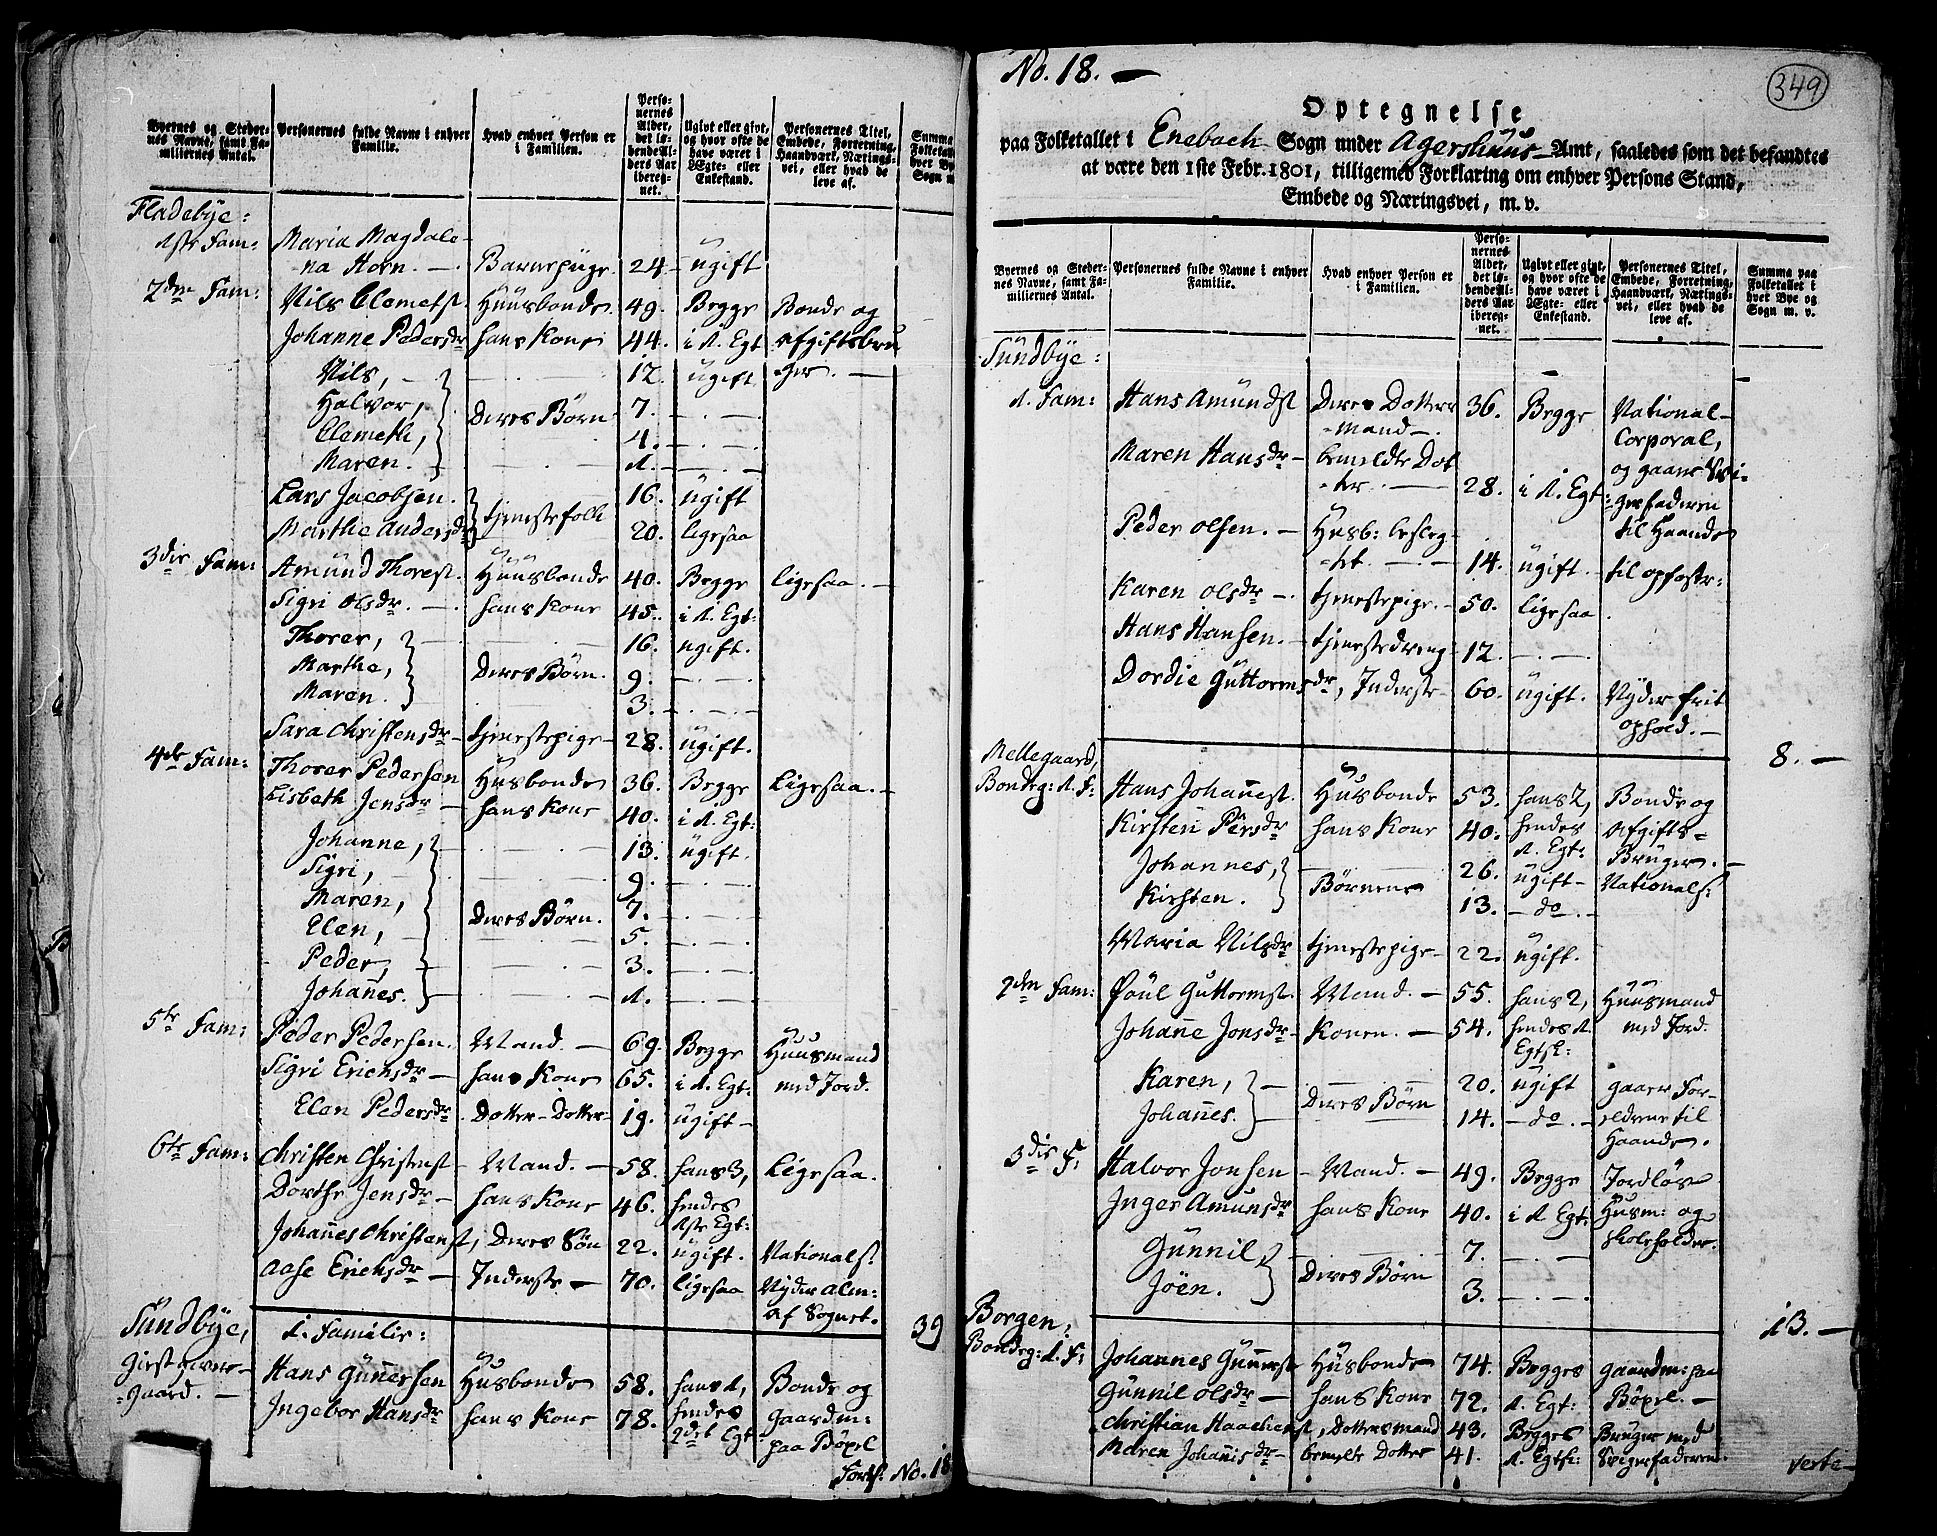 Byernes og Steder-nes Navne, samt Fa-miliernes Antal. | Personernes fulde Navne i enhver Familie. | Hvad enhver Person er i Familien. | Perso-nernes Alder, det lø-bende Al-ders Aar ibereg-net. | Ugivt eller givt, og hvor ofte de have været i Ægte- eller Enkestand. | Personernes Titel, Embede, Forretning, Haandværk, Nærings-vei, eller hvad de leve af. | Summa
Fladebye:
1ste Fam: Maria Magdale-
na Horn. — Barnepiige 24 ugift
2den Fam: Nils Clemetst. Huusbonde 49. Begge Bonde og
Johanne Pedersdr hans Kone 44. i 1. Egt afgiftsbru
Nils, 12. ugift ger. —
Halvor, Deres Børn 7. — . —
Clemeth, 4. — . —
Maren. 1. — . —
Lars Jacobsen. tjenestefolk 16. ugift
Marthe Andersdr 20. ligesaa
3die Fam: Amund Thorest. Huusbonde 40. Begge ligesaa. —
Sigri Olsdr. — hans Kone 45. i 1. Egt:
Thorer, 16. ugift.
Marthe, Deres Børn. 9. — . —
Maren. 3. — . —
Sara Christensdr tjenestepige 28. ugift.
4de Fam: Thorer Pedersen Husbonde 36. Begge Ligesaa. —
Lisbeth Jensdr — hans Kone 40. i 1. Egt:
Johanne, 13. ugift.
Sigri, 9. — . —
Maren, 7. — . —
Elen, Deres Børn. 5. — . —
Peder, 3. — . —
Johañes. 1. — . —
5te Fam: Peder Pedersen. Mand. — 69. Begge Huusmand
Sigri Erichsdr — hans Kone 65. i 1. Egt: med Jord.
Elen Pedersdr Dotter-Dotter 19. ugift —
6te Fam: Christen Christenst — Mand. — 58. hans 3, Ligesaa.
Dorthe Jensdr — hans Kone 46. hendes
1ste Egt:
Johañes Christenst, Deres Søn 22. ugift. Nationals:
Aase Erichsdr — Inderste — 70. ligesaa Nyder alm:
af Sognet. 39
Sundbye, 1. Familie:
Giestgiver-
gaard. —
Hans Guñersen Husbonde 58. hans 1, Bonde og
Ingebor Hansdr hans Kone 78. hendes Gaardm:
2det Egt: paa Böxel
Forts: No. 18
No. 18. —
349
Optegnelse
paa Folketallet i Enebach Sogn under Agershuus Amt, saaledes som det befandtes
at være den 1ste Febr. 1801, tilligemed Forklaring om enhver Persons Stand,
Embede og Næringsvei, m. v.
Byernes og Steder-nes Navne, samt Fa-miliernes Antal. | Personernes fulde Navne i enhver Familie. | Hvad enhver Person er i Familien. | Perso-nernes Alder, det lø-bende Al-ders Aar ibereg-net. | Ugivt eller givt, og hvor ofte de have været i Ægte- eller Enkestand. | Personernes Titel, Embede, Forretning, Haandværk, Nærings-vei, eller hvad de leve af. | Summa paa Folketallet i hver Bye og Sogn m. v.
Sundbye:
1. Fam: Hans Amundst Deres Dotter 36. Begge National-
mand —. Corporal,
Maren Hansdr — bemeldte Dot og gaaer Svi-
ter. — 28. i 1. Egt: gerfaderen
Peder Olsen. — Husb: besleg- til Haande
tet. — 14. ugift. til opfostr:
Karen Olsdr —. tjenestepige. 50. ligesaa
Hans Hansen. — tjenestedreng 12. — . —
Dordie Guttormsdr, Inderste 60. ugift. Nyder frit
ophold. —
8. —
Mellegaard,
Bondeg: 1. F: Hans Johañest. Husbonde 53. hans 2, Bonde og
Kirsten Persdr hans Kone 40. hendes afgifts-
1. Egt: Bruger. —
Johannes, Børnene 26. ugift — Nationals:
Kirsten. 13. — do. —
Maria Nilsdr tjenestepige 22. ugift.
2den Fam: Poul Guttormst. Mand. — 55. hans 2, Huusmand
Johañe Jonsdr Konen. — 54. hendes 1. med Jord.
Egtsk:
Karen, Deres Børn 20. ugift gaaer For-
Johañes. 14. — do. — eldrene til
Haande.
3die F: Halvor Jonsen — Mand. — 49. Begge Jordløs
Inger Amunsdr hans Kone 40. i 1. Egt: Husm: og
Skoleholder.
Gunnil Deres Børn 7. — . —
Jöen. 3. — . —
13. —
Borgen,
Bondeg: 1. F: Johannes Guñerst Husbonde 74. Begges Gaardm: paa
Gunnil Olsdr — hans Kone 72. 1. Egt: Böxel. —
Christian Haachenst, Dottersmand 43. Begges Bruger med
Maren Johañisdr — bemelte Dotter 41. 1. Egtsk: Svigerfaderen.
verte —